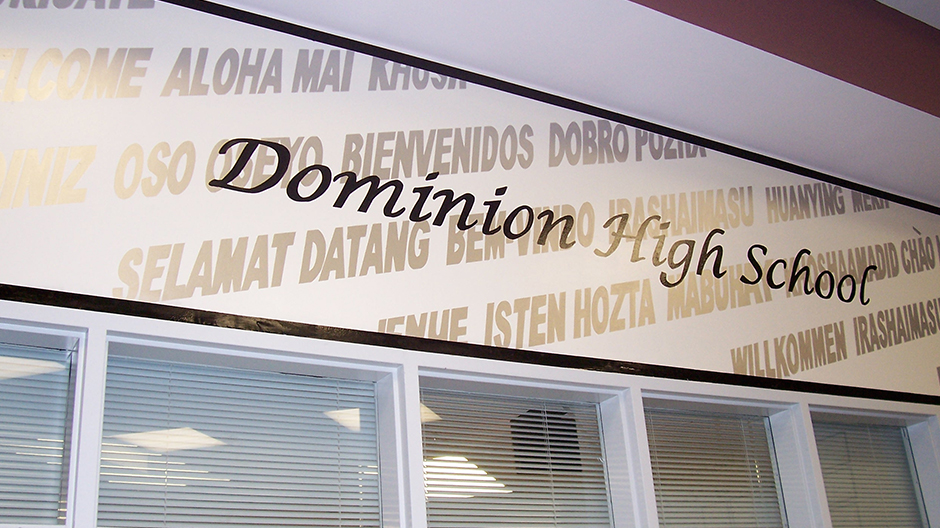 WELCOME ALOHA MAI
OSO OSEYO BIENVENIDOS DOBRO
Dominion High School
SELAMAT DATANG BEM-VINDO IRASHAIMASU HUANYING
ISTEN HOZTA MABUHAY CHÀO
WILLKOMMEN IRASHAIMASU